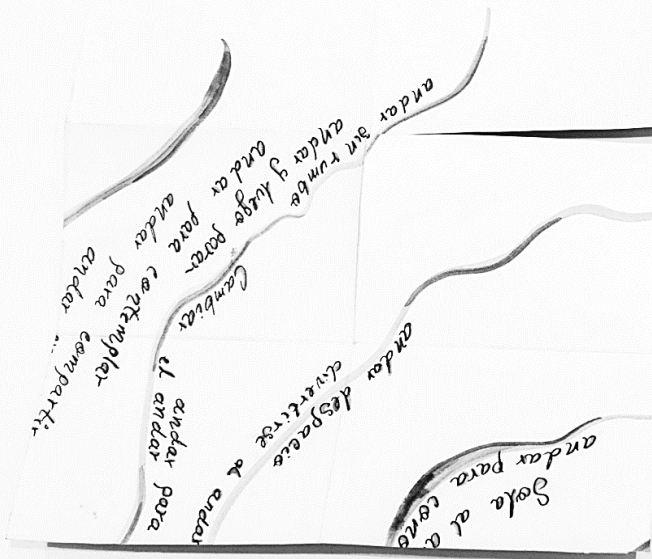 andar
sin rumbo
andar y luego parar
andar para contemplar
andar para compartir
andar
Cambiar
el andar para
el andar
andar despacio
divertirse al andar
andar para cono
Sola al a